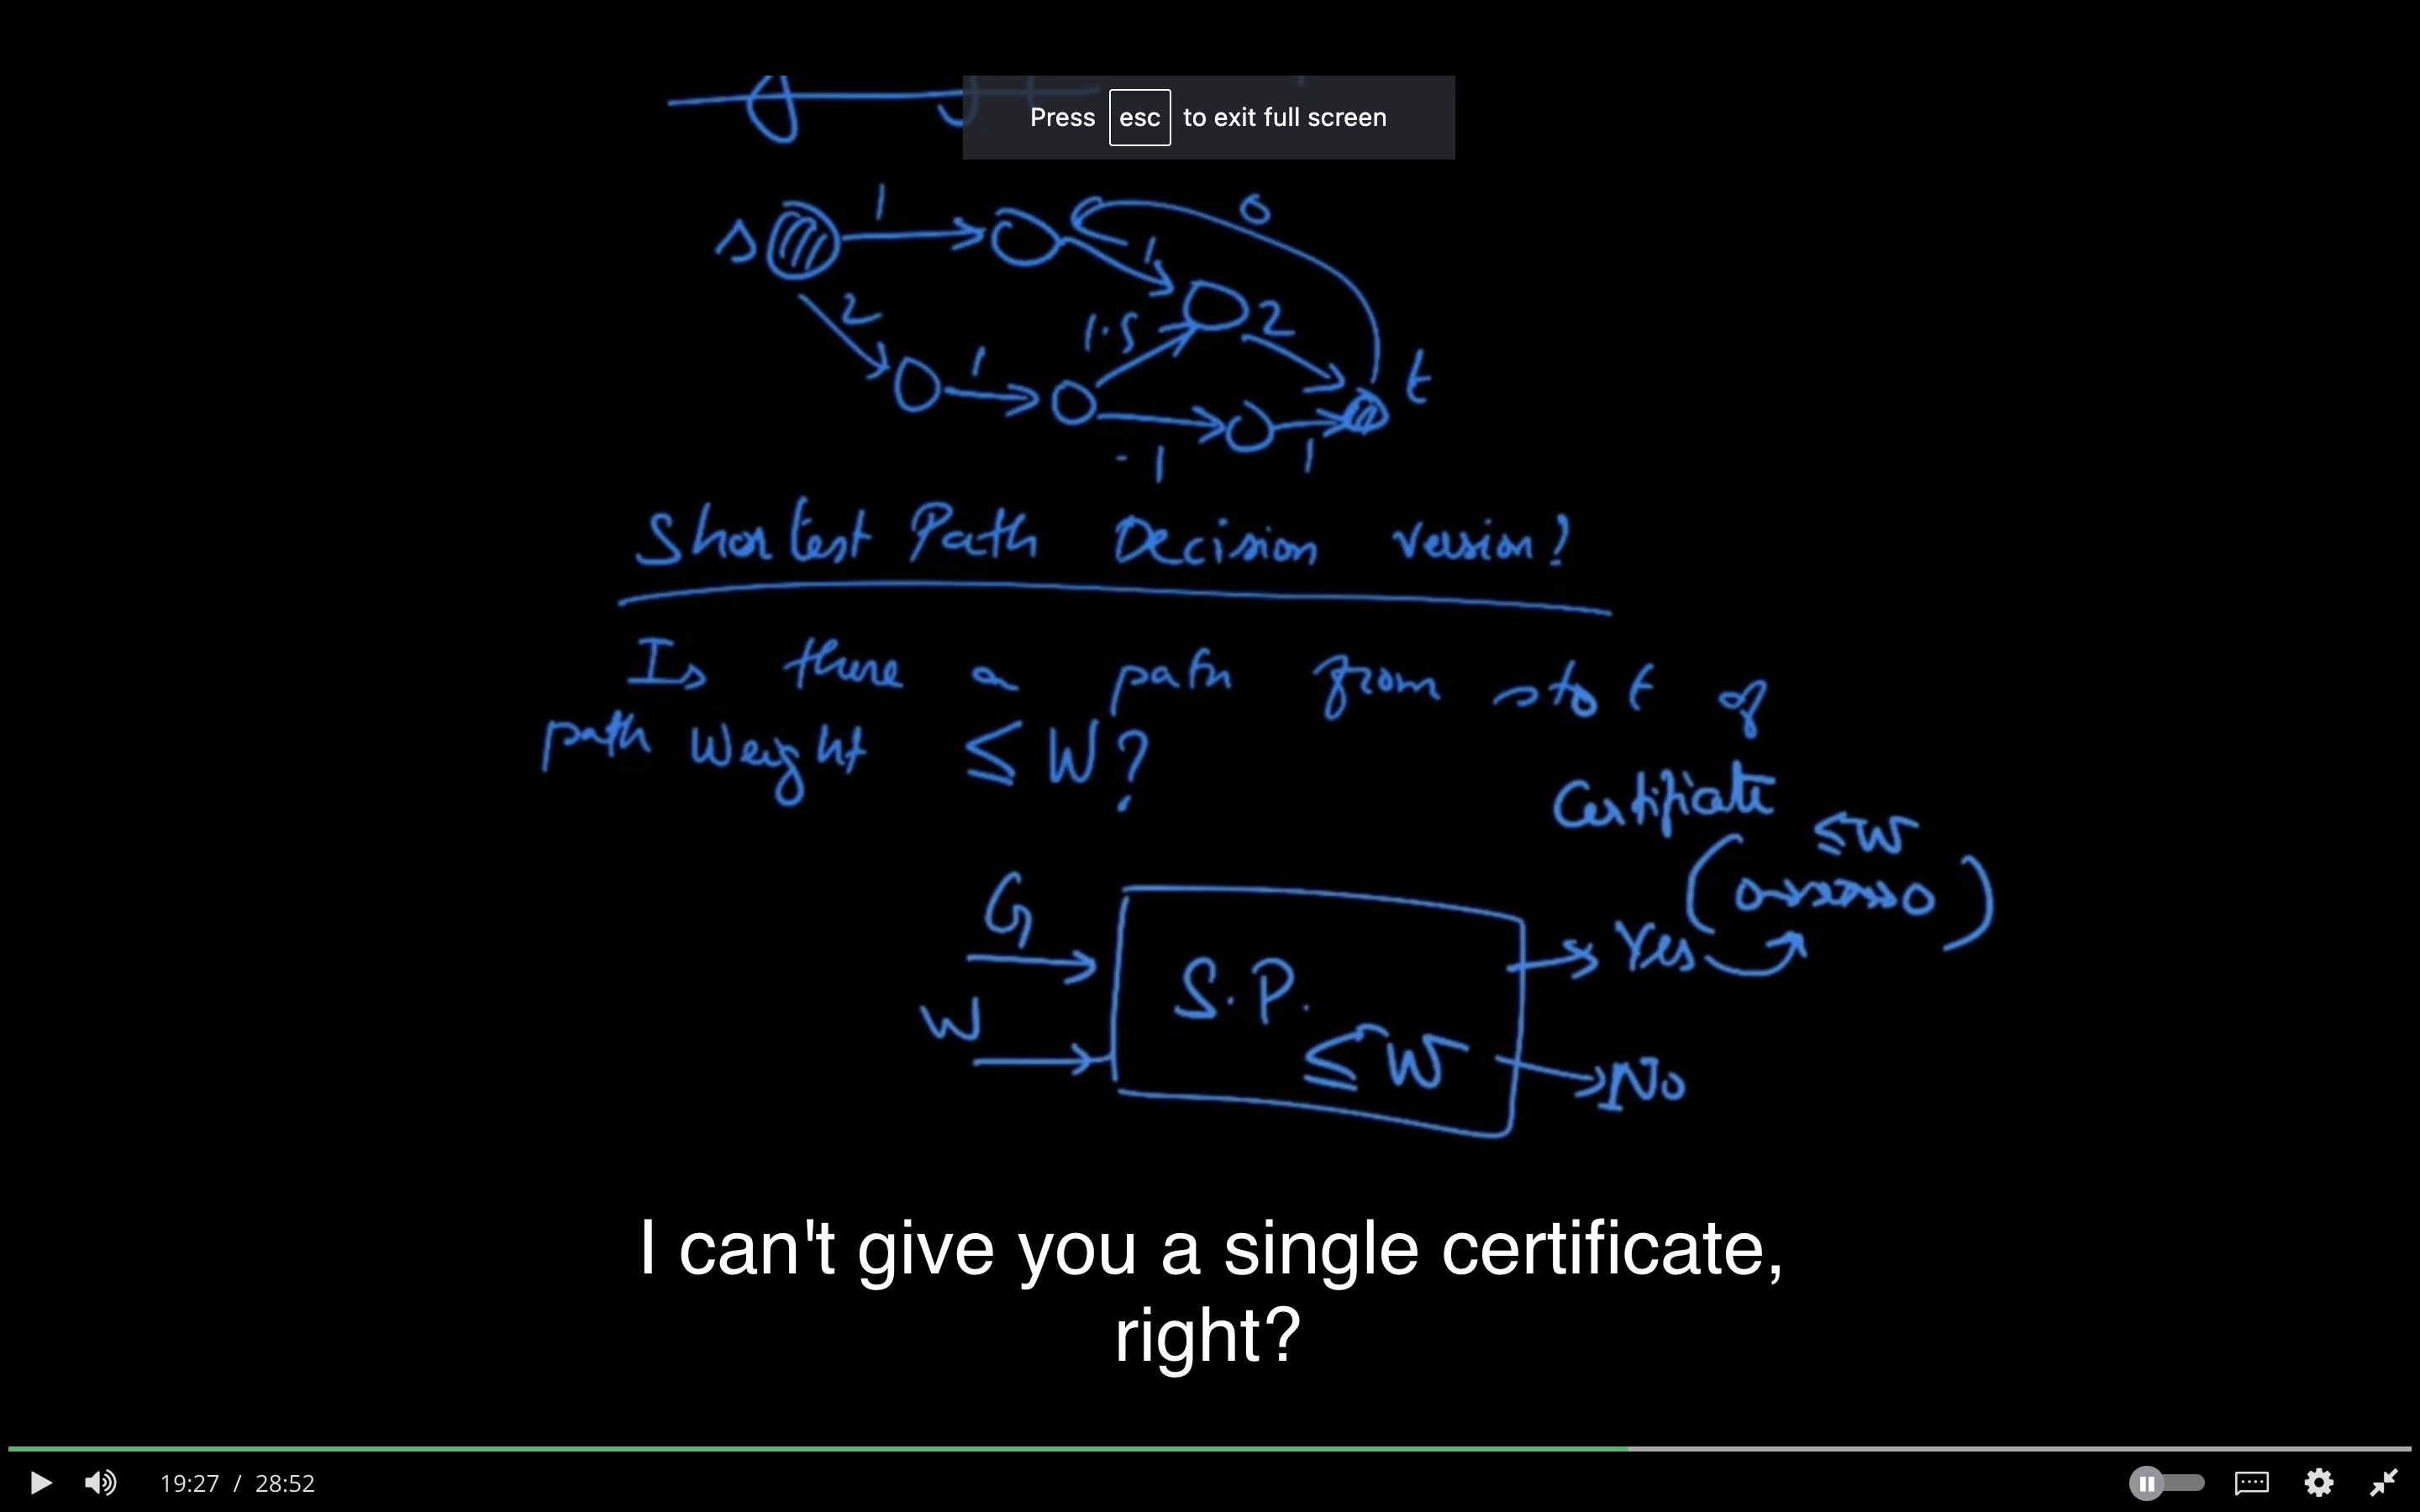 Press esc to exit full screen
s 1 0
1
2 1.5 2
1 t
-1 1
Shortest Path Decision version?
Is there a path from s to t of
path Weight ≤ W?
Certificate
≤W
G
Yes
S.P.
W
≤ W
No
I can't give you a single certificate,
right?
19:27 / 28:52